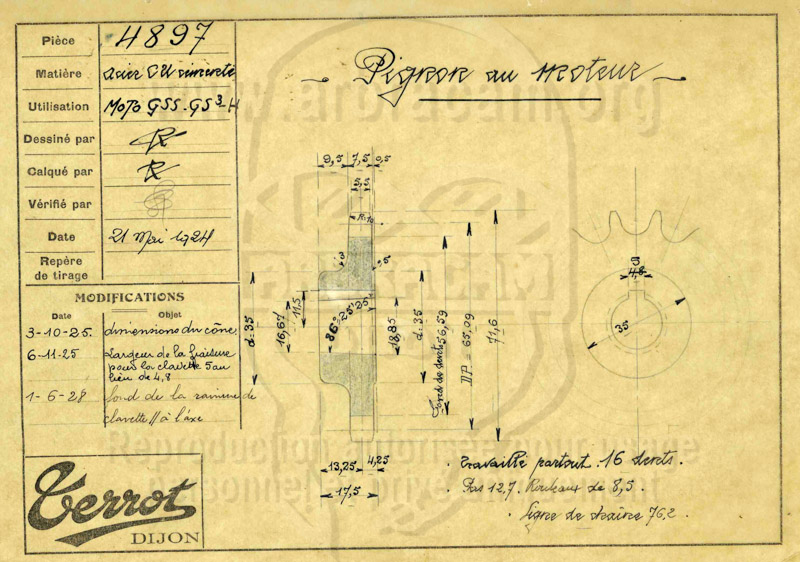 Pièce 4897
Matière acier CU cémenté
Utilisation Moto GSS-GS3-H
Dessiné par
Calqué par
Vérifié par
Date 21 Mai 1924
Repère
de tirage
MODIFICATIONS
Date Objet
3-10-25. dimensions du cône
6-11-25 Largeur de la fraisure
pour la clavette 5 au
lieu de 4,8
1-6-28 fond de la rainure de
clavette // à l'axe
Terrot
DIJON
Pignon au moteur
9,5 7,5 0,5
R.10
d.35
16,67
11,5
86°25'25"
18,85
d.35
Fond de dents 56,59
DP = 65,09
71,6
13,25 4,25
17,5
5
4,8
35
travaillé partout. 16 dents.
Pas 12,7. Rouleaux de 8,5.
ligne de chaîne 76,2.
www.arbracam.org
Reproduction autorisée pour usage